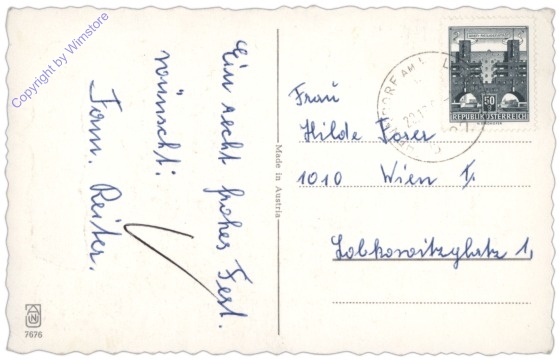 Ein recht frohes Fest.
wünscht:
Fam. Reiter.
Made in Austria
7676
Copyright by Wimstore
50
REPUBLIK ÖSTERREICH
Frau
Hilde Foser
1010 Wien I.
Lobkowitzplatz 1,